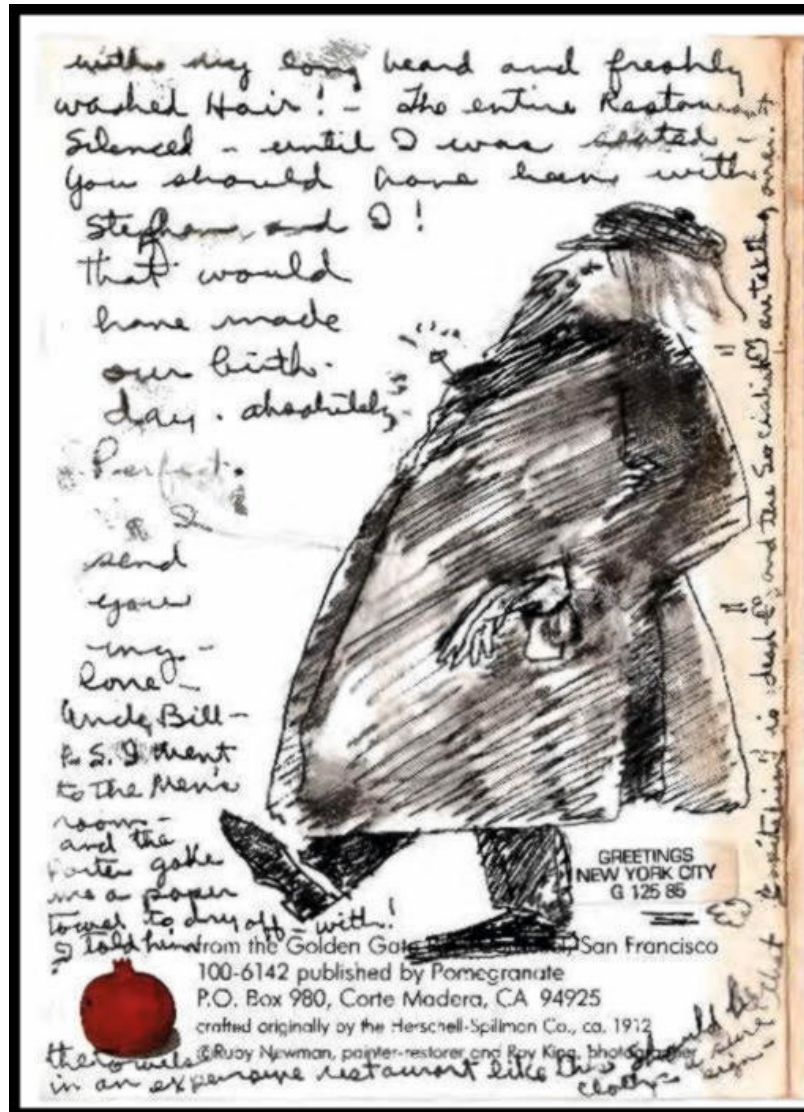 with my long beard and freshly
washed Hair! - The entire Restaurant
Silenced - until I was seated -
You should have been with
Stephan and I!
that would
have made
our birth-
day. absolutely
Perfect.
I
send
you
my -
love -
Uncle Bill -
P.S. I went
to the Men's
room -
and the
Porter gave
me a paper
towel to dry off - with!
I told him
the towels
in an expensive restaurant like this should be
cloth - a sure sign - that
Capitalism is dead and the Socialists are taking over.
GREETINGS
NEW YORK CITY
G 125 85
from the Golden Gate San Francisco
100-6142 published by Pomegranate
P.O. Box 980, Corte Madera, CA 94925
crafted originally by the Herschell-Spillman Co., ca. 1912
©Ruby Newman, painter-restorer and Roy King, photographer